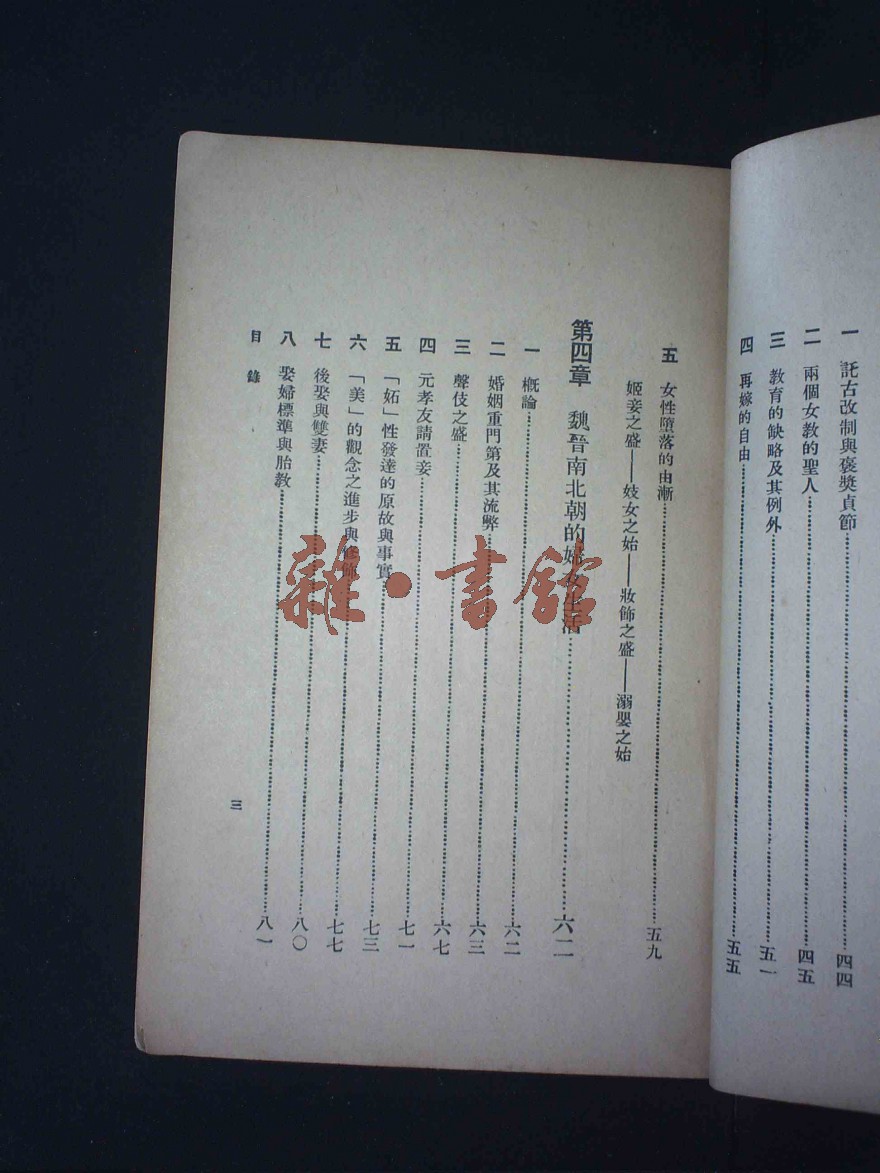 一 託古改制與褒獎貞節 四四
二 兩個女教的聖人 四五
三 教育的缺略及其例外 五一
四 再嫁的自由 五五
五 女性墮落的由漸 五九
姬妾之盛——妓女之始——妝飾之盛——溺嬰之始
第四章 魏晉南北朝的婦女生活 六二
一 概論 六二
二 婚姻重門第及其流弊 六三
三 聲伎之盛 六七
四 元孝友請置妾 七一
五 「妬」性發達的原故與事實 七三
六 「美」的觀念之進步與修飾 七七
七 後娶與雙妻 八〇
八 娶婦標準與胎教 八一
目錄
三
雜·書館